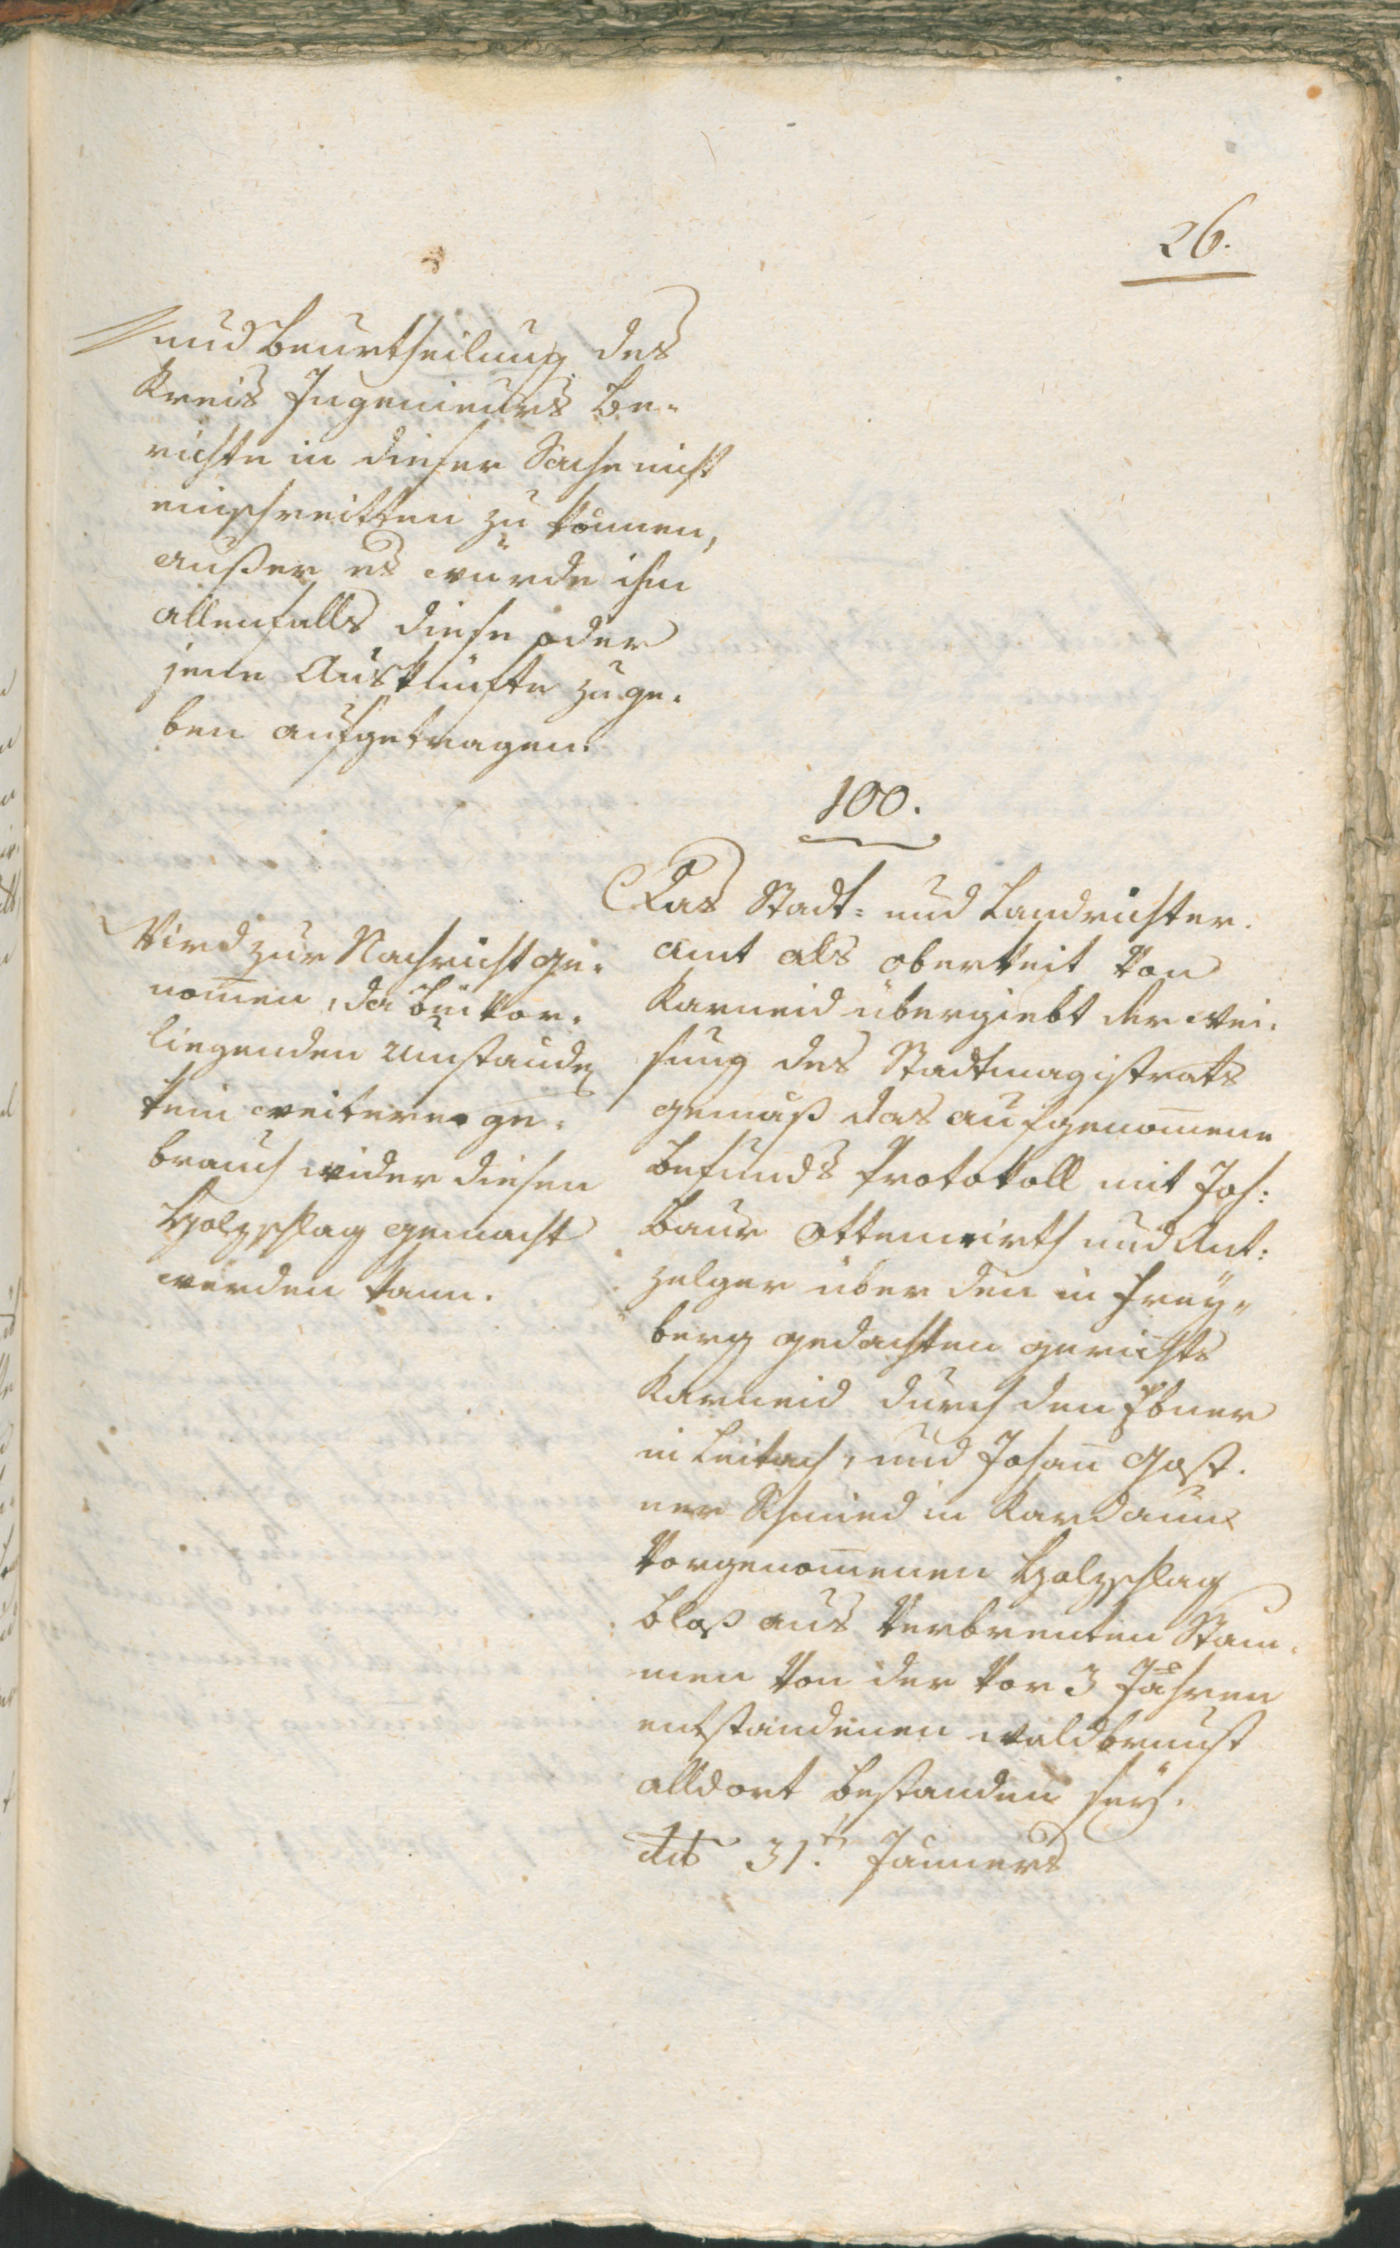 26.
und Beurtheilung des
Kreis Ingenieurs Be-
richte in dieser Sache nicht
einschreitten zu können,
außer es würde ihm
allenfalls diese oder
jene Auskünfte zu ge-
ben aufgetragen.
100.
Das Stadt- und Landrichter-
amt als oberkeit von
Karneid übergiebt der wei-
sung des Stadtmagistrats
gemäß das aufgenom̄ene
Befunds Protokoll mit Joh:
Baur ottenwirth und Ant:
zelger über den in Frey-
berg gedachten gerichts
Karneid durch den Ebner
in Leitach, und Johan̄ Gost-
ner Schmied in Kardaun
vorgenom̄enen Holzschlag
bloß aus verbrenten Stäm-
men von der vor 3 Jahren
entstandenen waldbrunst
alldort bestanden seÿ.
dto 31.n Jänners
Wird zur Nachricht ge-
nom̄en, da beÿ vor-
liegenden Umständen
kein weiterer ge-
brauch wider diesen
Holzschlag gemacht
werden kann.